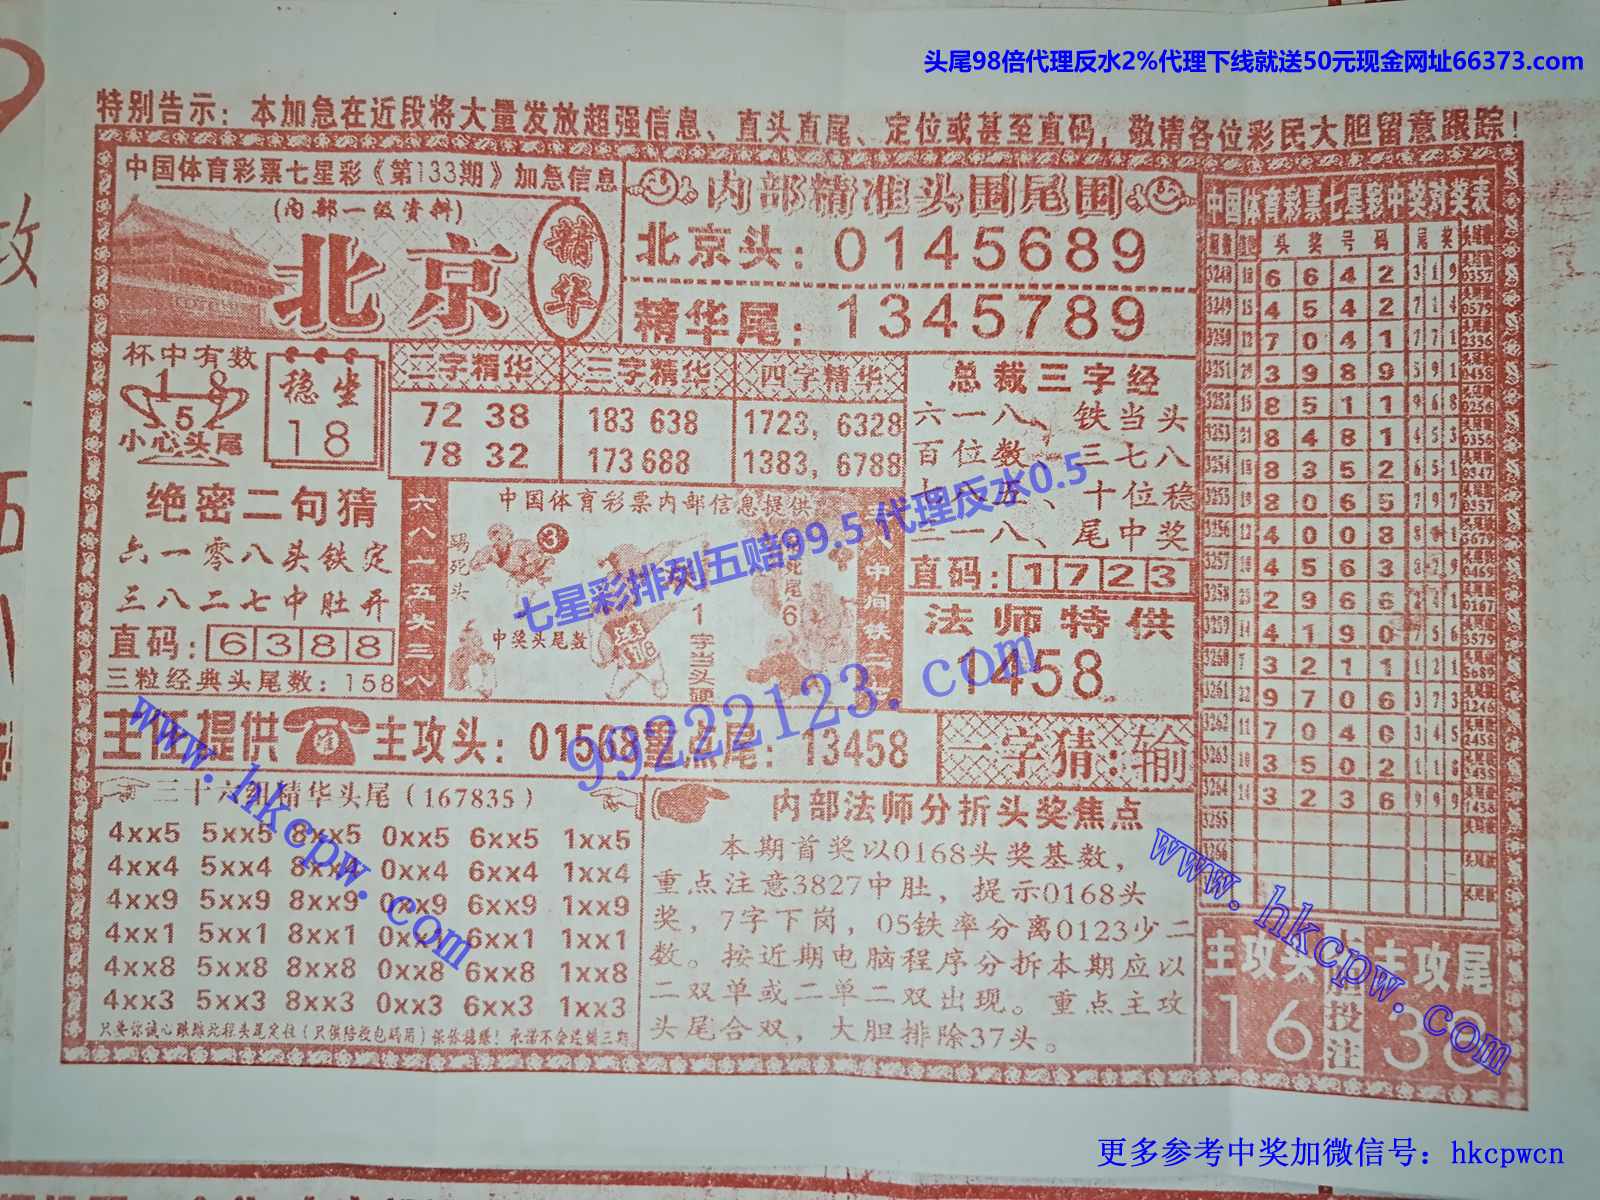 头尾98倍代理反水2%代理下线就送50元现金网址66373.com
特别告示：本加急在近段将大量发放超强信息、直头直尾、定位或甚至直码，敬请各位彩民大胆留意跟踪！
中国体育彩票七星彩《第133期》加急信息
(内部一级资料)
北京
精华
内部精准头围尾围
北京头：0145689
精华尾：1345789
杯中有数
1 8
5
小心头尾
稳坐
18
二字精华
72 38
78 32
三字精华
183 638
173 688
四字精华
1723，6328
1383，6788
总裁三字经
六一八、铁当头
百位数、三七八
七八五、十位稳
三一八、尾中奖
直码：1723
绝密二句猜
六一零八头铁定
三八二七中肚开
直码：6388
三粒经典头尾数：158
六八一五头三八
中国体育彩票内部信息提供
踢死头
3
中奖头尾数
1字当头硬
尾6
法师特供
1458
七星彩排列五赔99.5 代理反水0.5
99222123.com
主任提供
主攻头：01568
重点尾：13458
一字猜：输
三十六组精华头尾（167835）
4xx5 5xx5 8xx5 0xx5 6xx5 1xx5
4xx4 5xx4 8xx4 0xx4 6xx4 1xx4
4xx9 5xx9 8xx9 0xx9 6xx9 1xx9
4xx1 5xx1 8xx1 0xx1 6xx1 1xx1
4xx8 5xx8 8xx8 0xx8 6xx8 1xx8
4xx3 5xx3 8xx3 0xx3 6xx3 1xx3
内部法师分折头奖焦点
本期首奖以0168头奖基数，
重点注意3827中肚，提示0168头
奖，7字下岗，05铁率分离0123少二
数。按近期电脑程序分拆本期应以
二双单或二单二双出现。重点主攻
头尾合双，大胆排除37头。
中国体育彩票七星彩中奖对奖表
头奖号码 尾奖
6 6 4 2 3 1 9
4 5 4 2 7 1 4
7 0 4 1 7 7 1
3 9 8 9 5 9 1
8 5 1 1 9 6 8
8 4 8 1 4 5 3
8 3 5 2 6 5 1
8 0 6 5 7 9 7
4 0 0 8
4 5 6 3
2 9 6 6
4 1 9 0 7 5 6
3 2 1 1 1 2 1
9 7 0 6 3 7 3
7 0 4 0
3 5 0 2 1 1 6
3 2 3 6 9 9 9
主攻头
16
投注
主攻尾
38
www.hkcpw.com
www.hkcpw.com
更多参考中奖加微信号：hkcpwcn